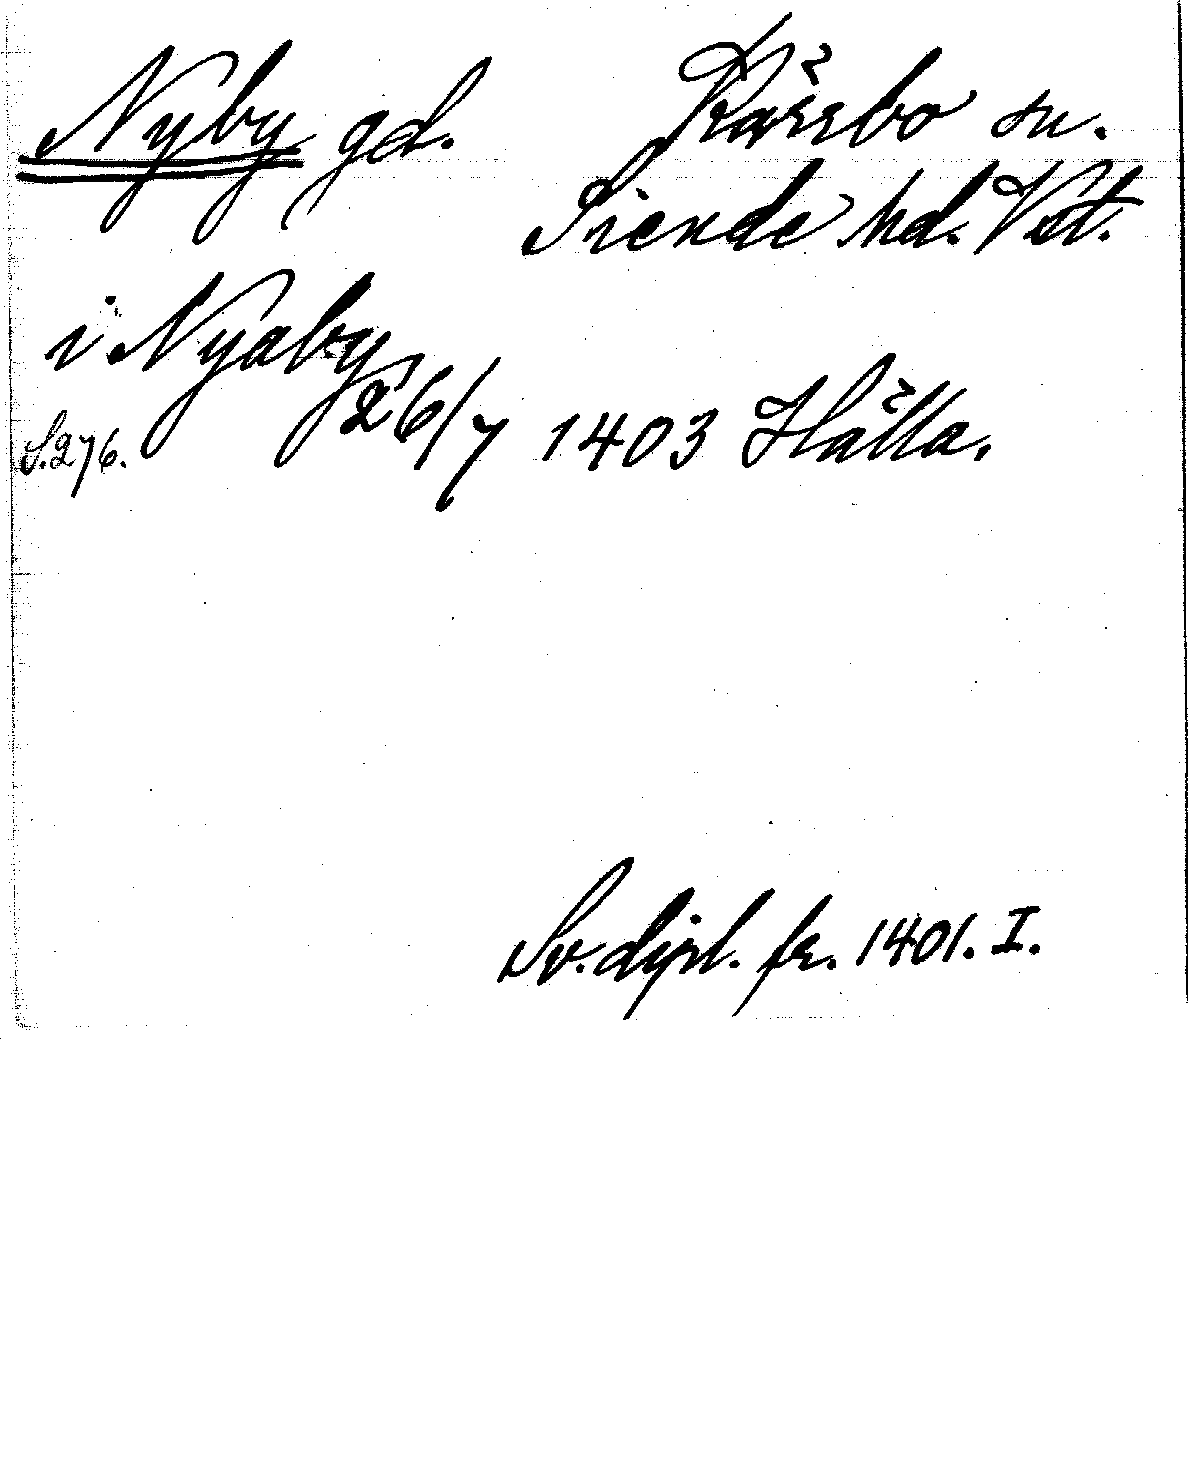 Nyby gd. Kärrbo sn.
Siende hd. Vst.
i Nyaby
S.276. 26/7 1403 Hälla.
Sv. dipl. fr. 1401. I.